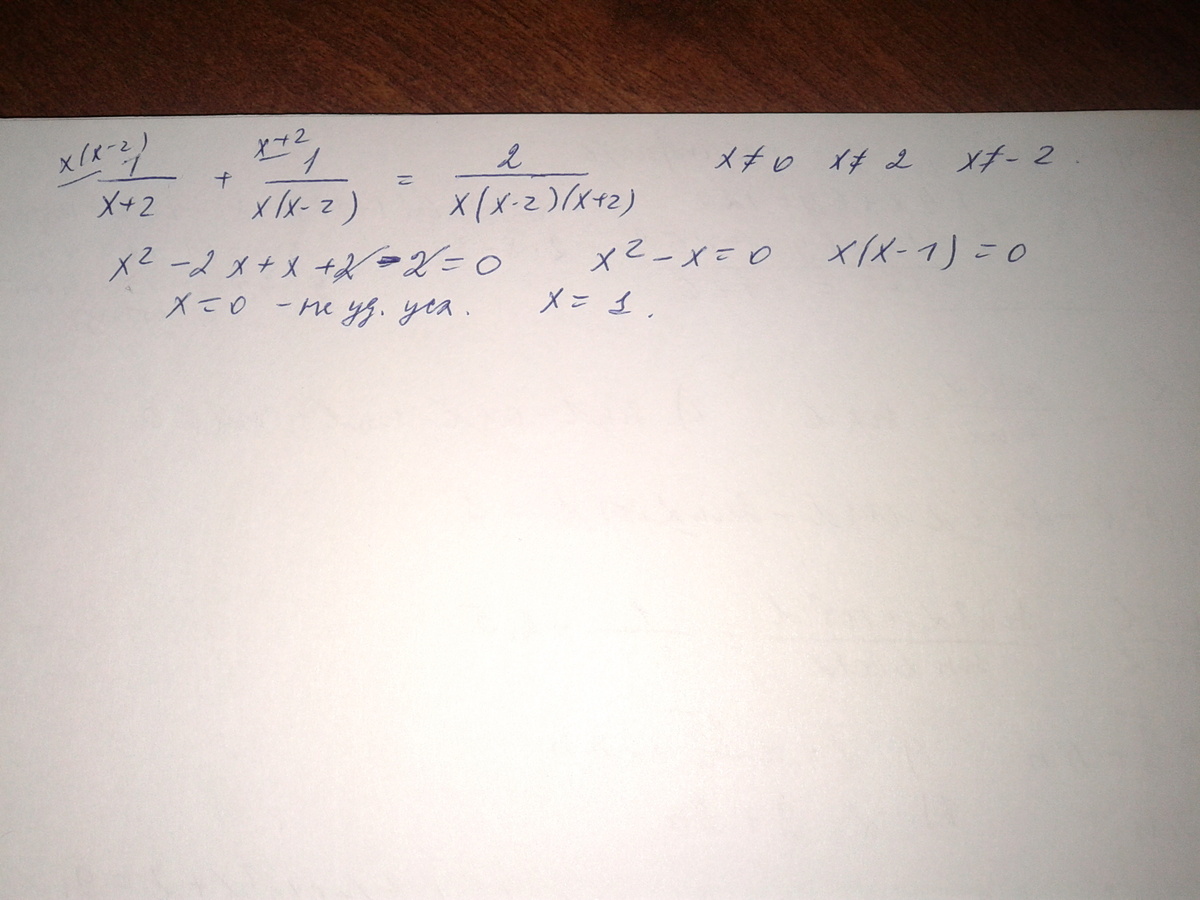 x(x-2) 1/(x+2) + x+2 1/(x(x-2)) = 2/(x(x-2)(x+2)) x≠0 x≠2 x≠-2.
x² -2x+x+2-2=0 x²-x=0 x(x-1)=0
x=0 - не уд. усл. x=1.